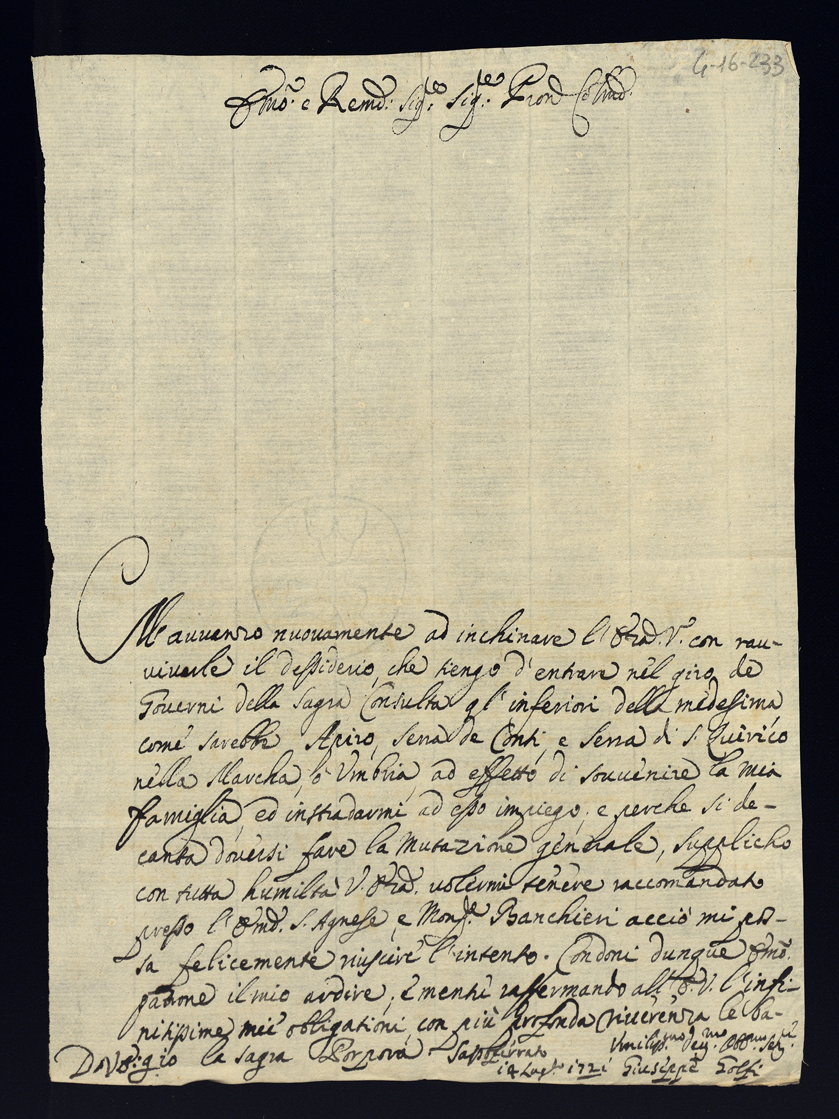 G-16-233
Emo: e Remd: Sig:re Sig:re Pron Colmo:
M'avvanzo nuovamente ad inchinare l'E.V. con rav-
viverle il dessiderio, che tengo d'entrare nel giro de
Governi della Sagra Consulta gl'inferiori della medessima
come sarebbe Apiro, Serra de Conti, e Serra di S. Quirico
nella Marcha, ò Umbria, ad effetto di souvenire la mia
famiglia, ed instradarmi ad esso impiego, e perche si de-
canta doversi fare la Mutazione generale, supplicho
con tutta humiltà V. volermi tenere raccomandato
presso l' S. Agnese, e Mons.re Banchieri acciò mi pos-
sa felicemente riuscire l'intento. Condoni dunque Emo:
padrone il mio ardire, e mentre raffermando all'E.V. l'infi-
nitissime mie obligationi, con più profonda riverenza le ba-
gio la Sagra Porpora Sassoferrato
Di V. Umiliss.mo Dev.mo Obb.mo Ser.e
14 Lugl. 1721 Giuseppe